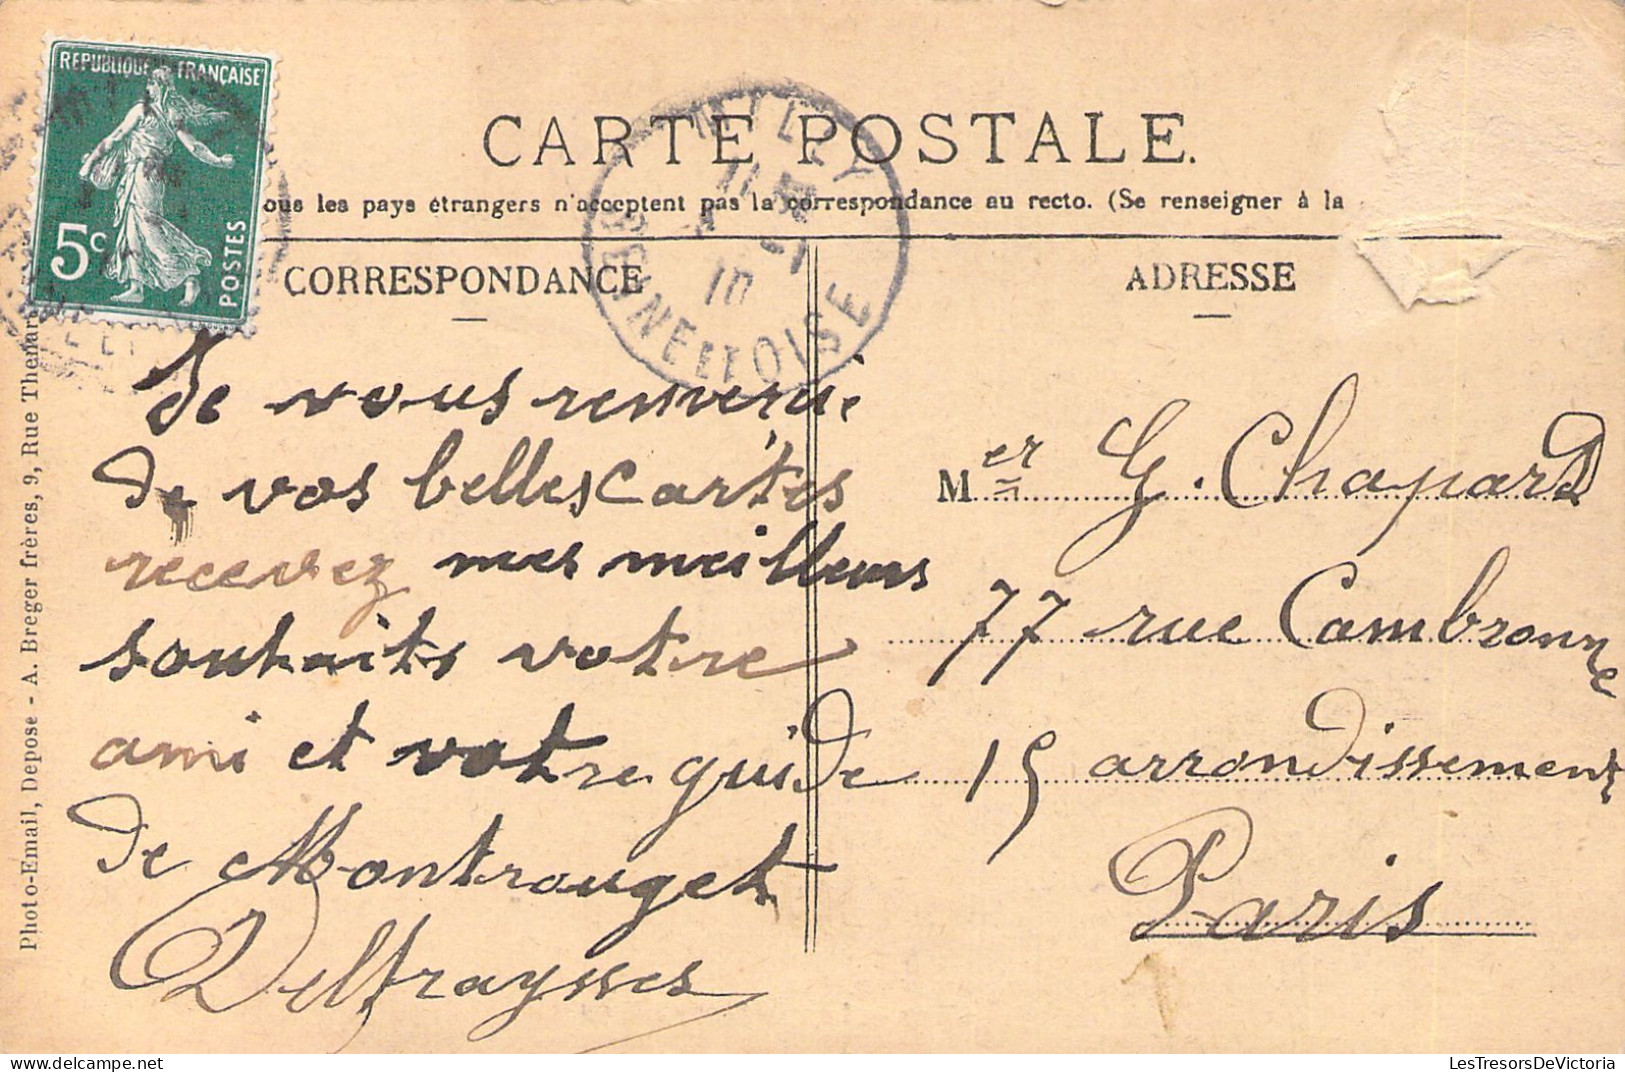 REPUBLIQUE FRANÇAISE
5c
POSTES
CARTE POSTALE.
ous les pays étrangers n'acceptent pas la correspondance au recto. (Se renseigner à la
SEINE ET OISE
10
CORRESPONDANCE
Je vous remercie
de vos belles cartes
recevez mes meilleurs
souhaits votre
ami et votre guide
de Montrouget
Delfraysses
ADRESSE
Mer G. Chapard
77 rue Cambronne
15 arrondissement
Paris
Photo-Email, Depose - A. Breger frères, 9, Rue Thenar
LesTresorsDeVictoria